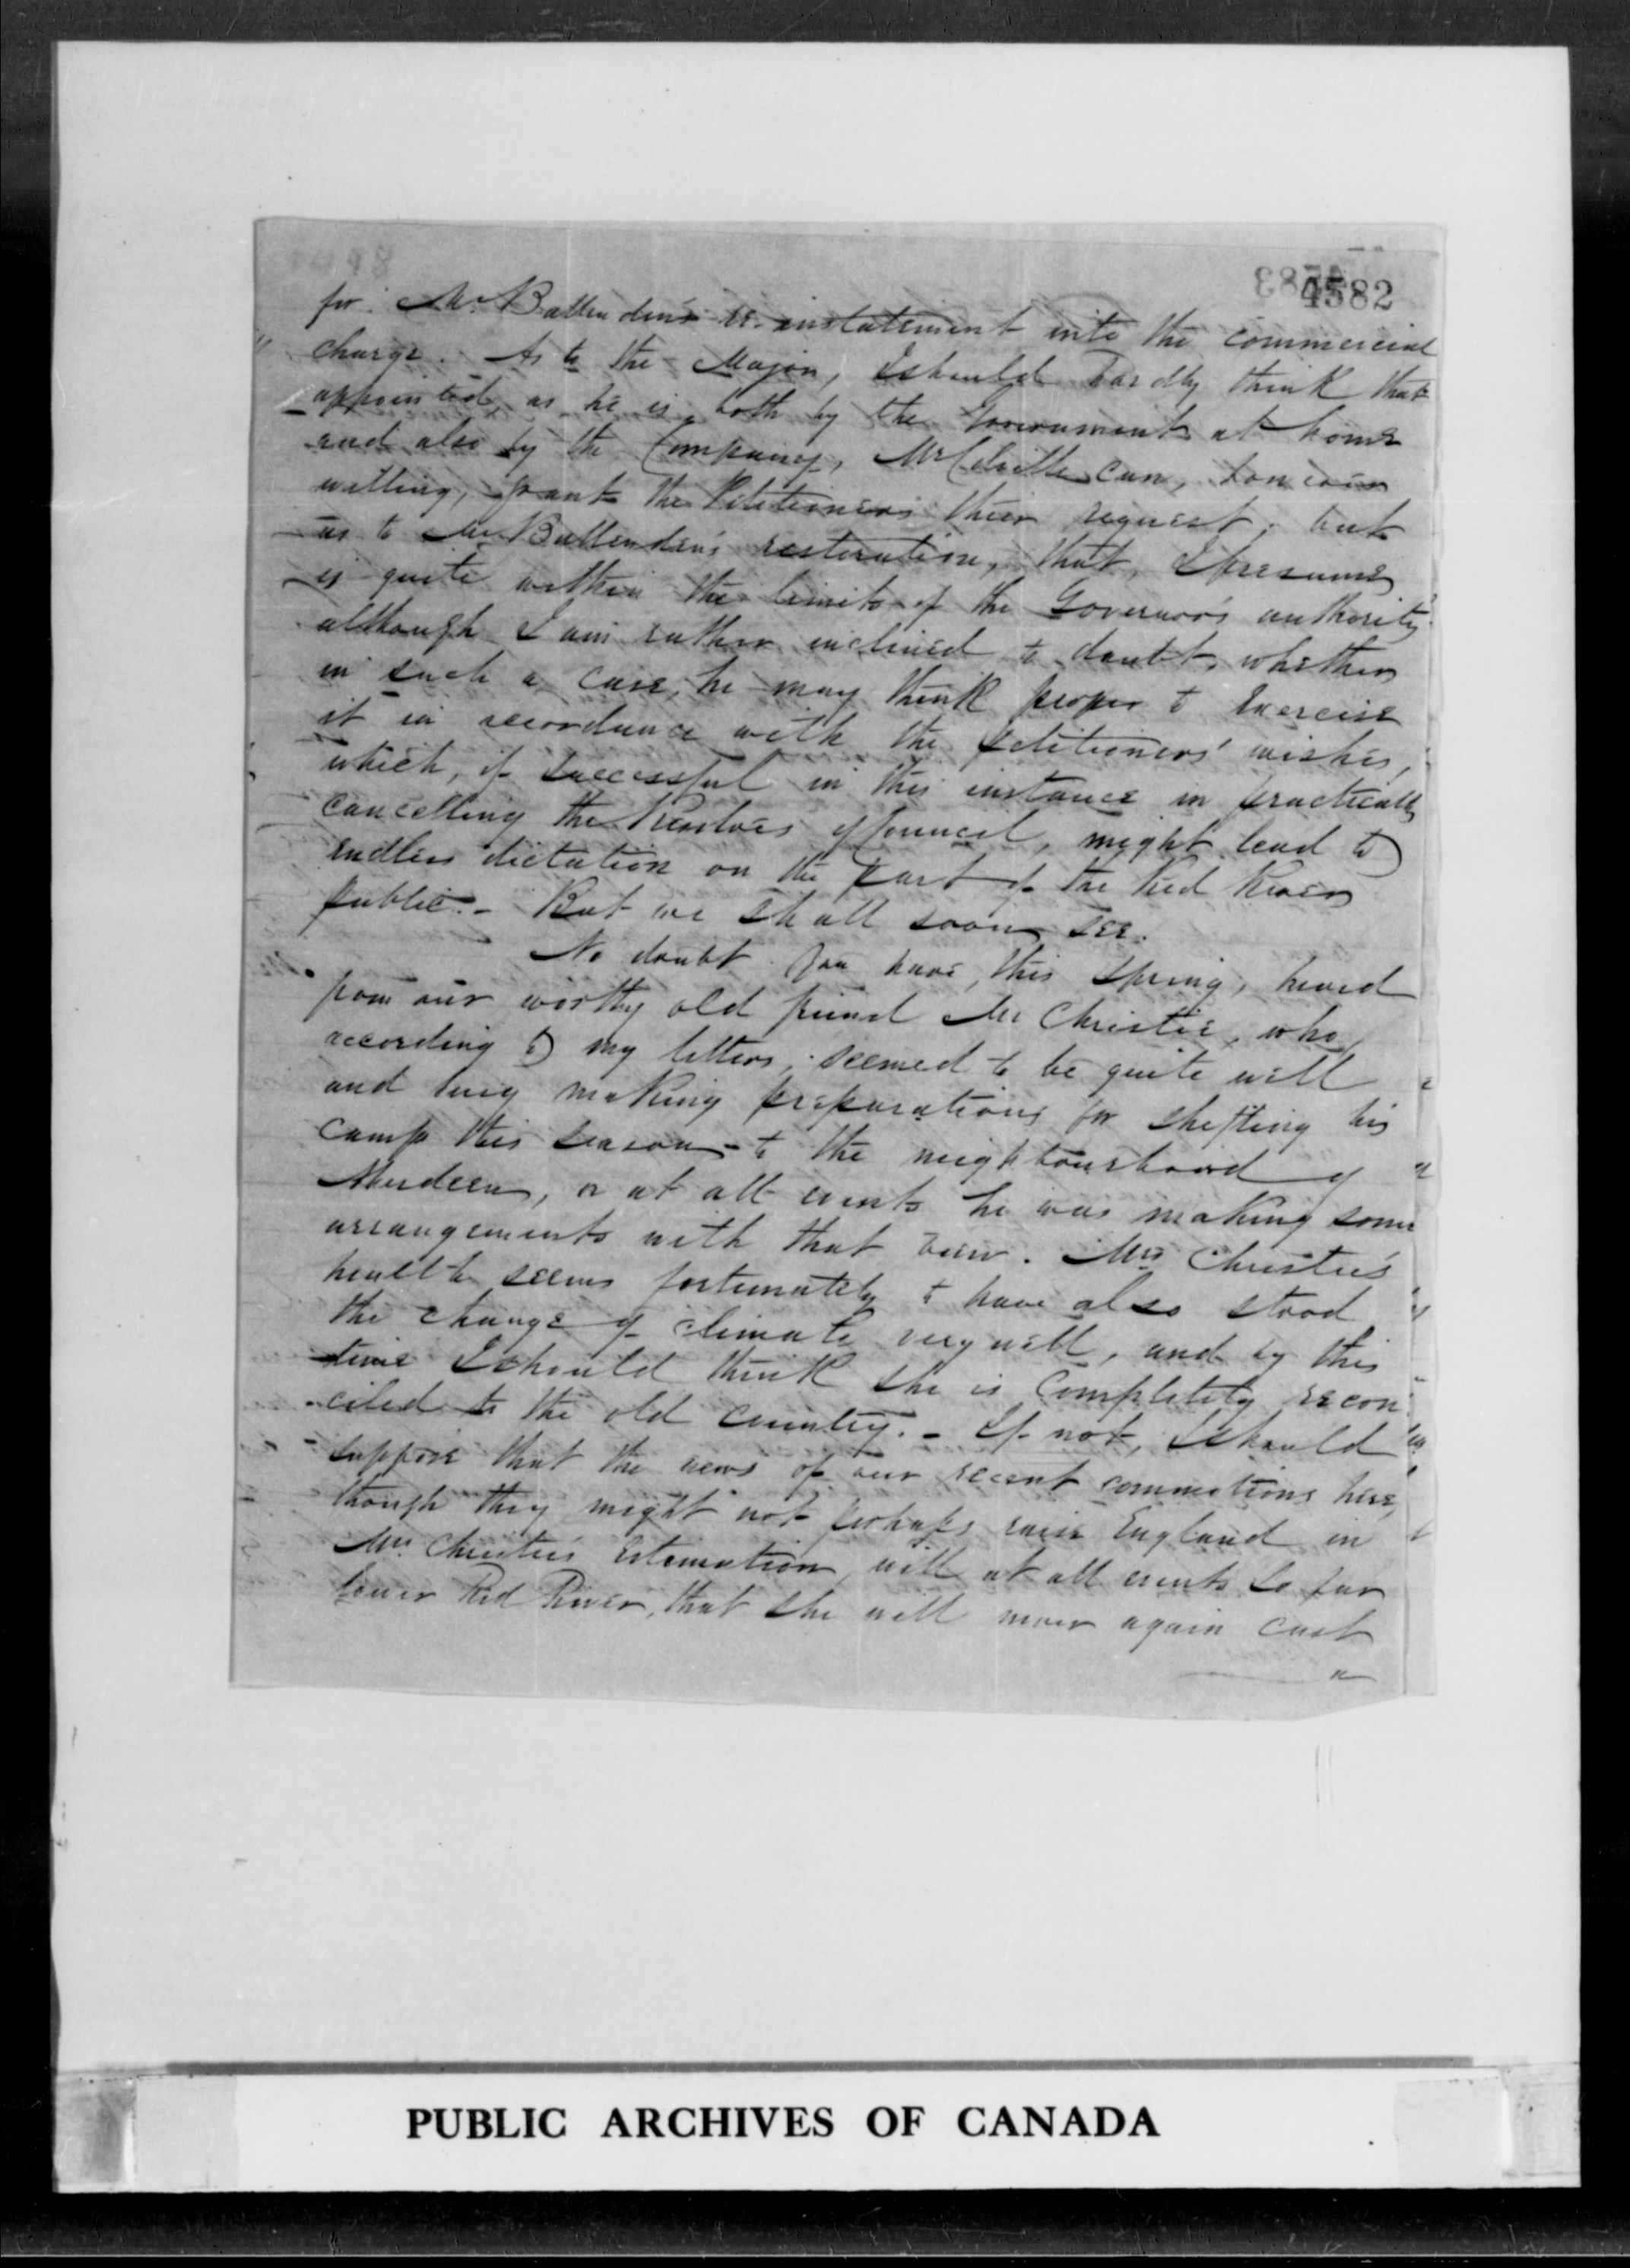 4582
for Mr. Ballenden's re-instatement into the commercial
charge. As to the Major, I should hardly think that
appointed as he is both by the Government at home
and also by the Company, Mr Colvile can, however
willing, grant the Petitioners their request; but
as to Mr. Ballenden's restoration, that, I presume
is quite within the limits of the Governor's authority
although I am rather inclined to doubt, whether
in such a case, he may think proper to exercise
it in accordance with the petitioners' wishes,
which, if successful in this instance in practically
cancelling the Resolves of Council, might lead to
endless dictation on the part of the Red River
public. - But we shall soon see.
No doubt you have, this spring, heard
from our worthy old friend Mr Christie, who
according to my letters, seemed to be quite well
and busy making preparations for shifting his
camp this season to the neighbourhood of
Aberdeen, or at all events he was making some
arrangements with that view. Mrs Christie's
health seems fortunately to have also stood
the change of climate very well, and by this
time I should think she is completely recon
ciled to the old country. - If not, I should
suppose that the news of our recent commotions here,
though they might not perhaps raise England in
Mrs. Christie's estimation, will at all events so far
lower Red River, that she will never again cast
PUBLIC ARCHIVES OF CANADA